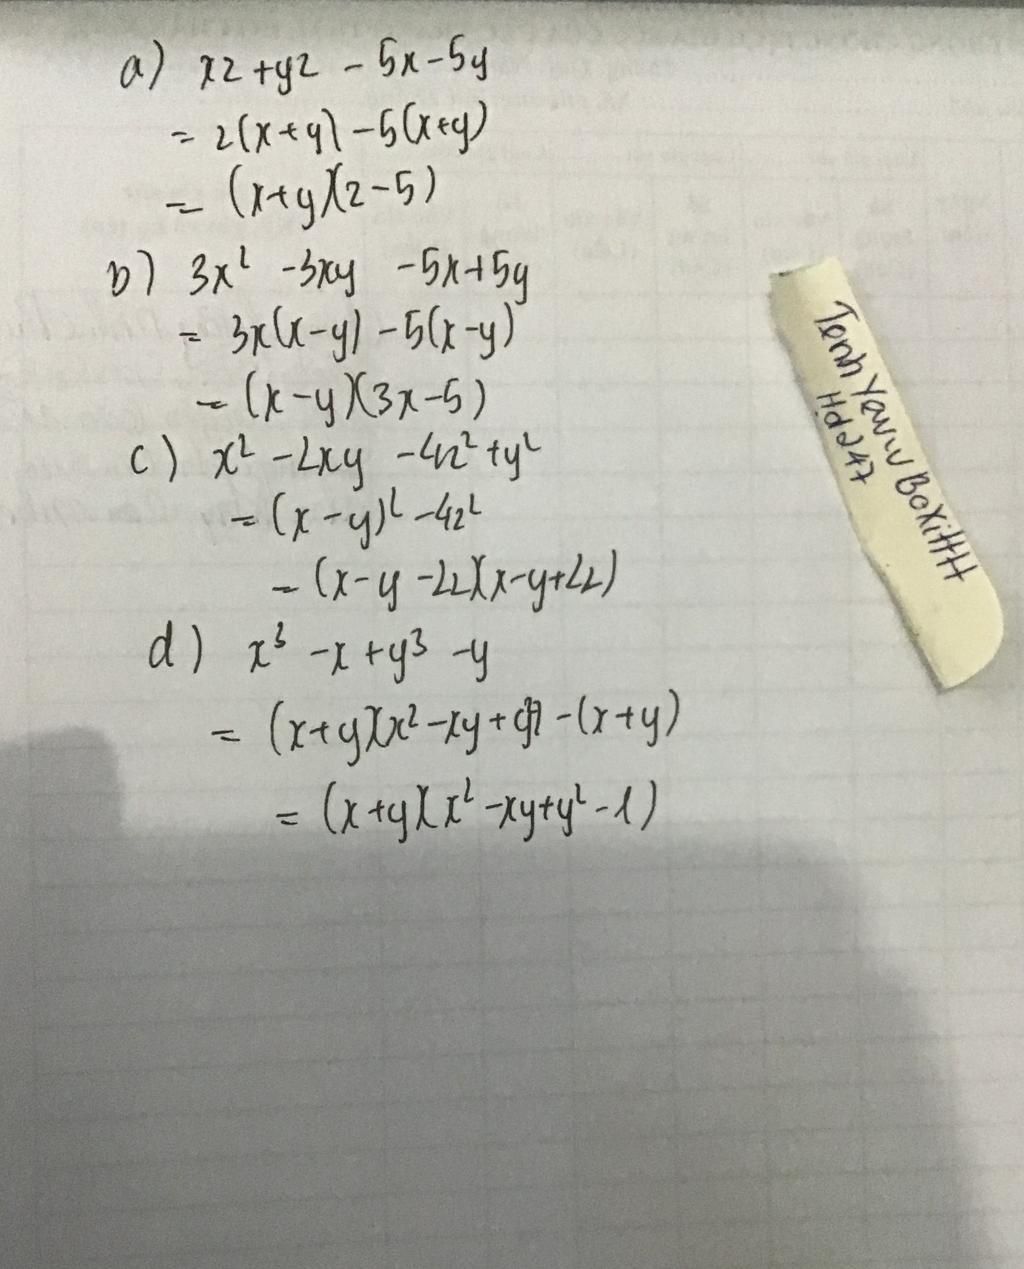 a) xz + yz - 5x - 5y
= z(x + y) - 5(x + y)
= (x + y)(z - 5)
b) 3x² - 3xy - 5x + 5y
= 3x(x - y) - 5(x - y)
= (x - y)(3x - 5)
c) x² - 2xy - 4z² + y²
= (x - y)² - 4z²
= (x - y - 2z)(x - y + 2z)
d) x³ - x + y³ - y
= (x + y)(x² - xy + y²) - (x + y)
= (x + y)(x² - xy + y² - 1)
Hd247